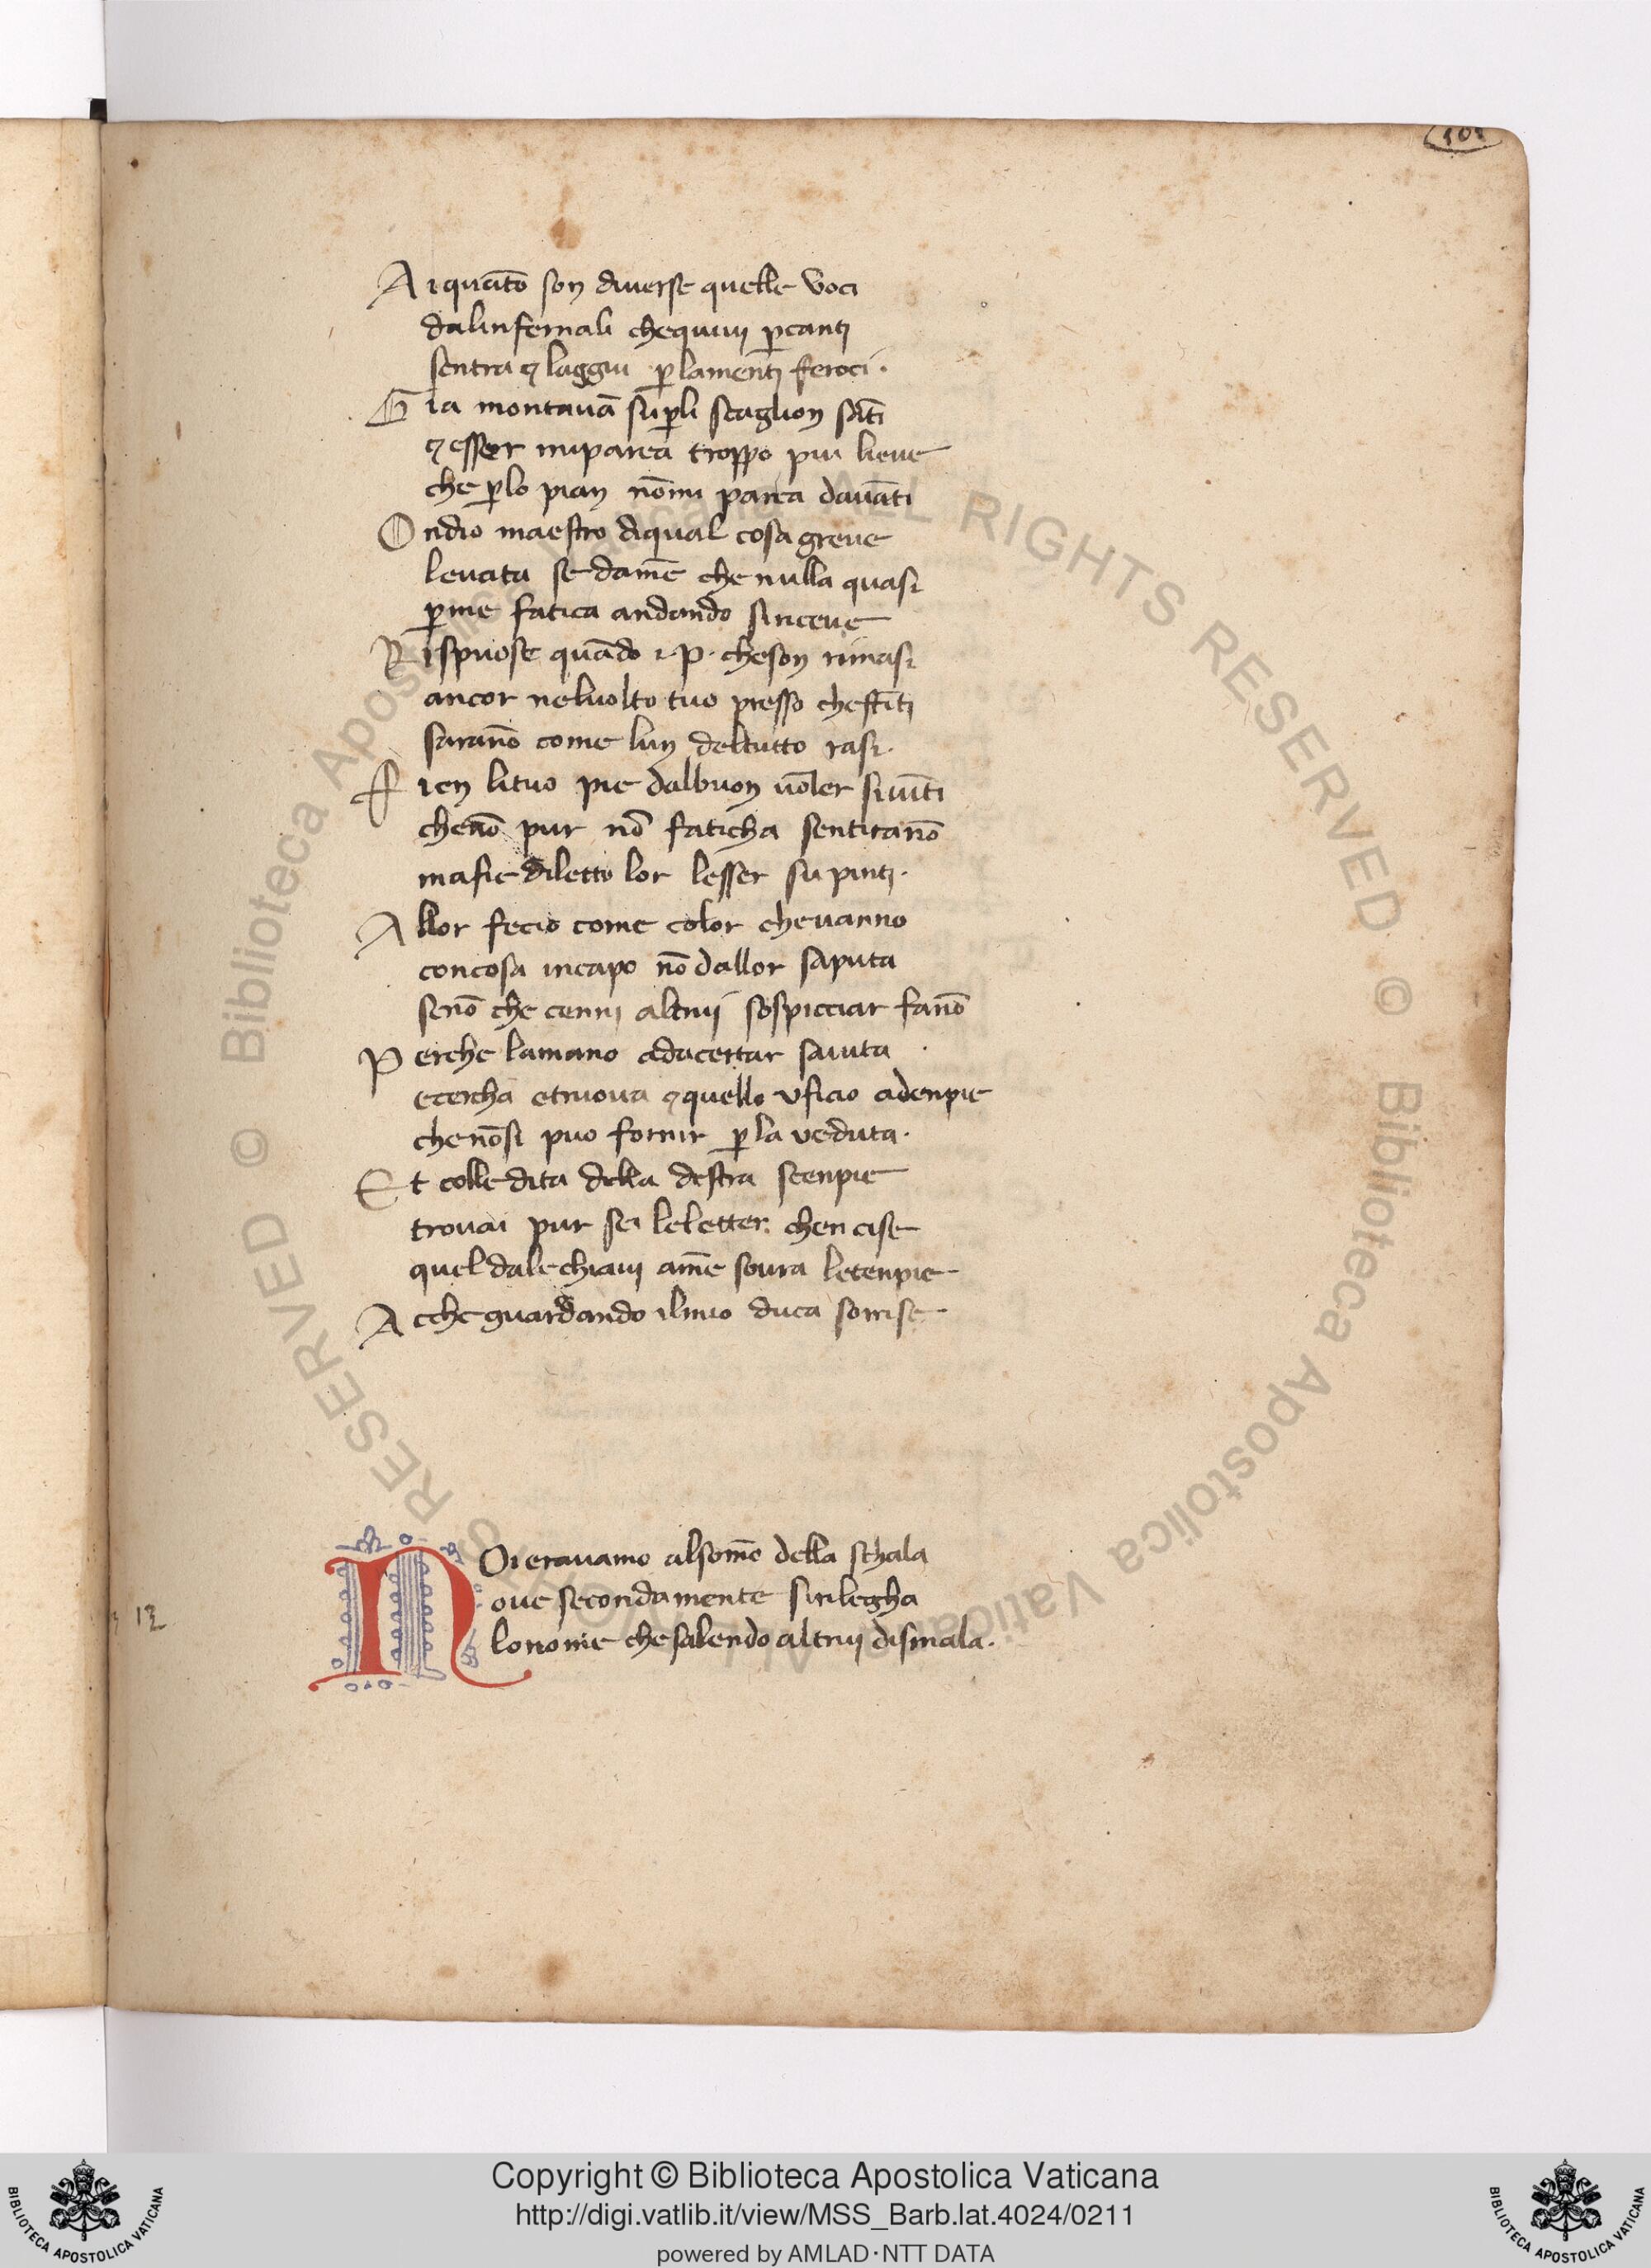 101
Ai quāto son diuerse quelle voci
dalinfernali chequiui ꝑcanti
sentra ⁊ laggiu ꝑlamenti feroci.
Gia montauā suꝑli scaglion sāti
⁊ esser miparea troppo piu lieue
che ꝑlo pian nōmi parea dauāti
Ondio maestro diqual cosa greue
leuata se damē che nulla quasi
ꝑme fatica andando siriceue
Rispuose quādo i.P. cheson rimasi
ancor neluolto tuo presso chestīti
sarāno come lun deltutto rasi.
Fien lituo pie dalbuon uōler siuīti
chenō pur nō faticha sentirāno
mafie diletto lor lesser su pinti.
Allor fecio come color cheuanno
concosa incapo nō dallor saputa
senō che cenni altrui sospicciar fāno
Perche lamano adacertar saiuta
ecercha etruoua ⁊ quello vficio adenpie
chenōsi puo fornir ꝑ la veduta.
Et colle dita della destra scenpie
trouai pur sei leletter chencise
quel dale chiaui amē soura letenpie
A cche guardando ilmio duca sorrise
NOi erauamo alsomō della schala
oue secondamente sirilegha
12
lonome chesalendo altrui dismala.
© Biblioteca Apostolica Vaticana ALL RIGHTS RESERVED © Biblioteca Apostolica Vaticana ALL RIGHTS RESERVED
Copyright © Biblioteca Apostolica Vaticana
http://digi.vatlib.it/view/MSS_Barb.lat.4024/0211
powered by AMLAD·NTT DATA
BIBLIOTECA APOSTOLICA VATICANA
BIBLIOTECA APOSTOLICA VATICANA